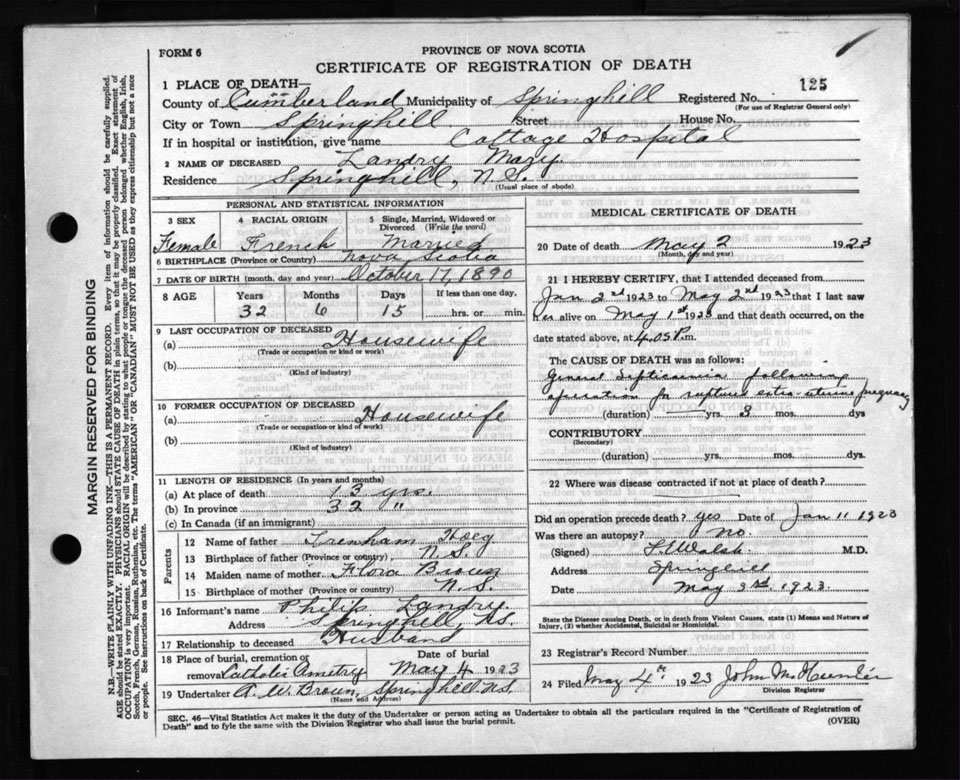 FORM 6
PROVINCE OF NOVA SCOTIA
CERTIFICATE OF REGISTRATION OF DEATH
125
1 PLACE OF DEATH—
County of Cumberland Municipality of Springhill Registered No.
(For use of Registrar General only)
City or Town Springhill Street House No.
If in hospital or institution, give name Cottage Hospital
2 NAME OF DECEASED Landry Mary
Residence Springhill, N.S.
(Usual place of abode)
PERSONAL AND STATISTICAL INFORMATION
3 SEX 4 RACIAL ORIGIN 5 Single, Married, Widowed or Divorced (Write the word)
Female French Married
6 BIRTHPLACE (Province or Country) Nova Scotia
7 DATE OF BIRTH (month, day and year) October 17, 1890
8 AGE Years Months Days If less than one day,
32 6 15 hrs. or min.
9 LAST OCCUPATION OF DECEASED
(a) Housewife
(Trade or occupation or kind or work)
(b)
(Kind of industry)
10 FORMER OCCUPATION OF DECEASED
(a) Housewife
(Trade or occupation or kind of work)
(b)
(Kind of industry)
11 LENGTH OF RESIDENCE (In years and months)
(a) At place of death 13 yrs.
(b) In province 32 "
(c) In Canada (if an immigrant)
Parents
12 Name of father Trenham Hoeg
13 Birthplace of father (Province or country) N.S.
14 Maiden name of mother Flora Brown
15 Birthplace of mother (Province or country) N.S.
16 Informant's name Philip Landry
Address Springhill, N.S.
17 Relationship to deceased Husband
18 Place of burial, cremation or removal Catholic Date of burial May 4 1923
19 Undertaker A. W. Brown, Springhill N.S.
(Name and Address)
MEDICAL CERTIFICATE OF DEATH
20 Date of death May 2 1923
(Month, day and year)
21 I HEREBY CERTIFY, that I attended deceased from
Jan 2nd 1923 to May 2nd 1923 that I last saw
her alive on May 1st 1923 and that death occurred, on the
date stated above, at 4.05 P.m.
The CAUSE OF DEATH was as follows:
General Septicaemia following
operation for ruptured extra-uterine pregnancy
(duration) yrs. 3 mos. dys
CONTRIBUTORY
(Secondary)
(duration) yrs. mos. dys.
22 Where was disease contracted if not at place of death?
Did an operation precede death? yes Date of Jan 11 1923
Was there an autopsy? No
(Signed) Walsh M.D.
Address Springhill
Date May 3rd 1923
State the Disease causing Death, or in death from Violent Causes, state (1) Means and Nature of Injury, (2) whether Accidental, Suicidal or Homicidal.
23 Registrar's Record Number
24 Filed May 4th 1923 John
Division Registrar
SEC. 46—Vital Statistics Act makes it the duty of the Undertaker or person acting as Undertaker to obtain all the particulars required in the "Certificate of Registration of
Death" and to fyle the same with the Division Registrar who shall issue the burial permit.
(OVER)
MARGIN RESERVED FOR BINDING
N.B—WRITE PLAINLY WITH UNFADING INK—THIS IS A PERMANENT RECORD. Every item of information should be carefully supplied.
AGE should be stated EXACTLY. PHYSICIANS should STATE CAUSE OF DEATH in plain terms, so that it may be properly classified. Exact statement of
OCCUPATION is very important. RACIAL ORIGIN will be described by stating to what people or tongue the deceased person belonged, whether English, Irish,
Scotch, French, German, Russian, Ruthenian, etc. The terms "AMERICAN" OR CANADIAN" MUST NOT BE USED as they express citizenship but not a race
or people. See instructions on back of Certificate.